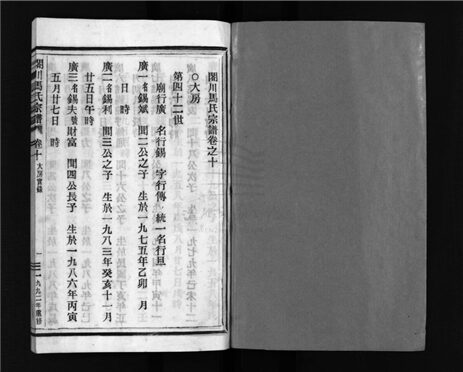 閣川馬氏宗譜卷之十
○大房
第四十二世
廟行廣 名行錫 字行傳 統一名行昆
廣一名錫斌 聞二公之子 生於一九七五年乙卯 月
日 時
廣二名錫利 聞三公之子 生於一九八三年癸亥十一月
廿五日午時
廣三名錫夫號財富 聞四公長子 生於一九八六年丙寅
五月廿七日 時
閣川馬氏宗譜 卷十 大房實錄
一 一九九二年重修